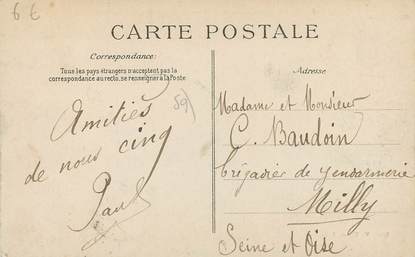 6 €
CARTE POSTALE
Correspondance:
Tous les pays étrangers n'acceptent pas la
correspondance au recto, se renseigner à la Poste
Adresse
59
Amitiés
de nous cinq
Paul
Madame et Monsieur
C. Baudoin
brigadier de gendarmerie
Milly
Seine et Oise